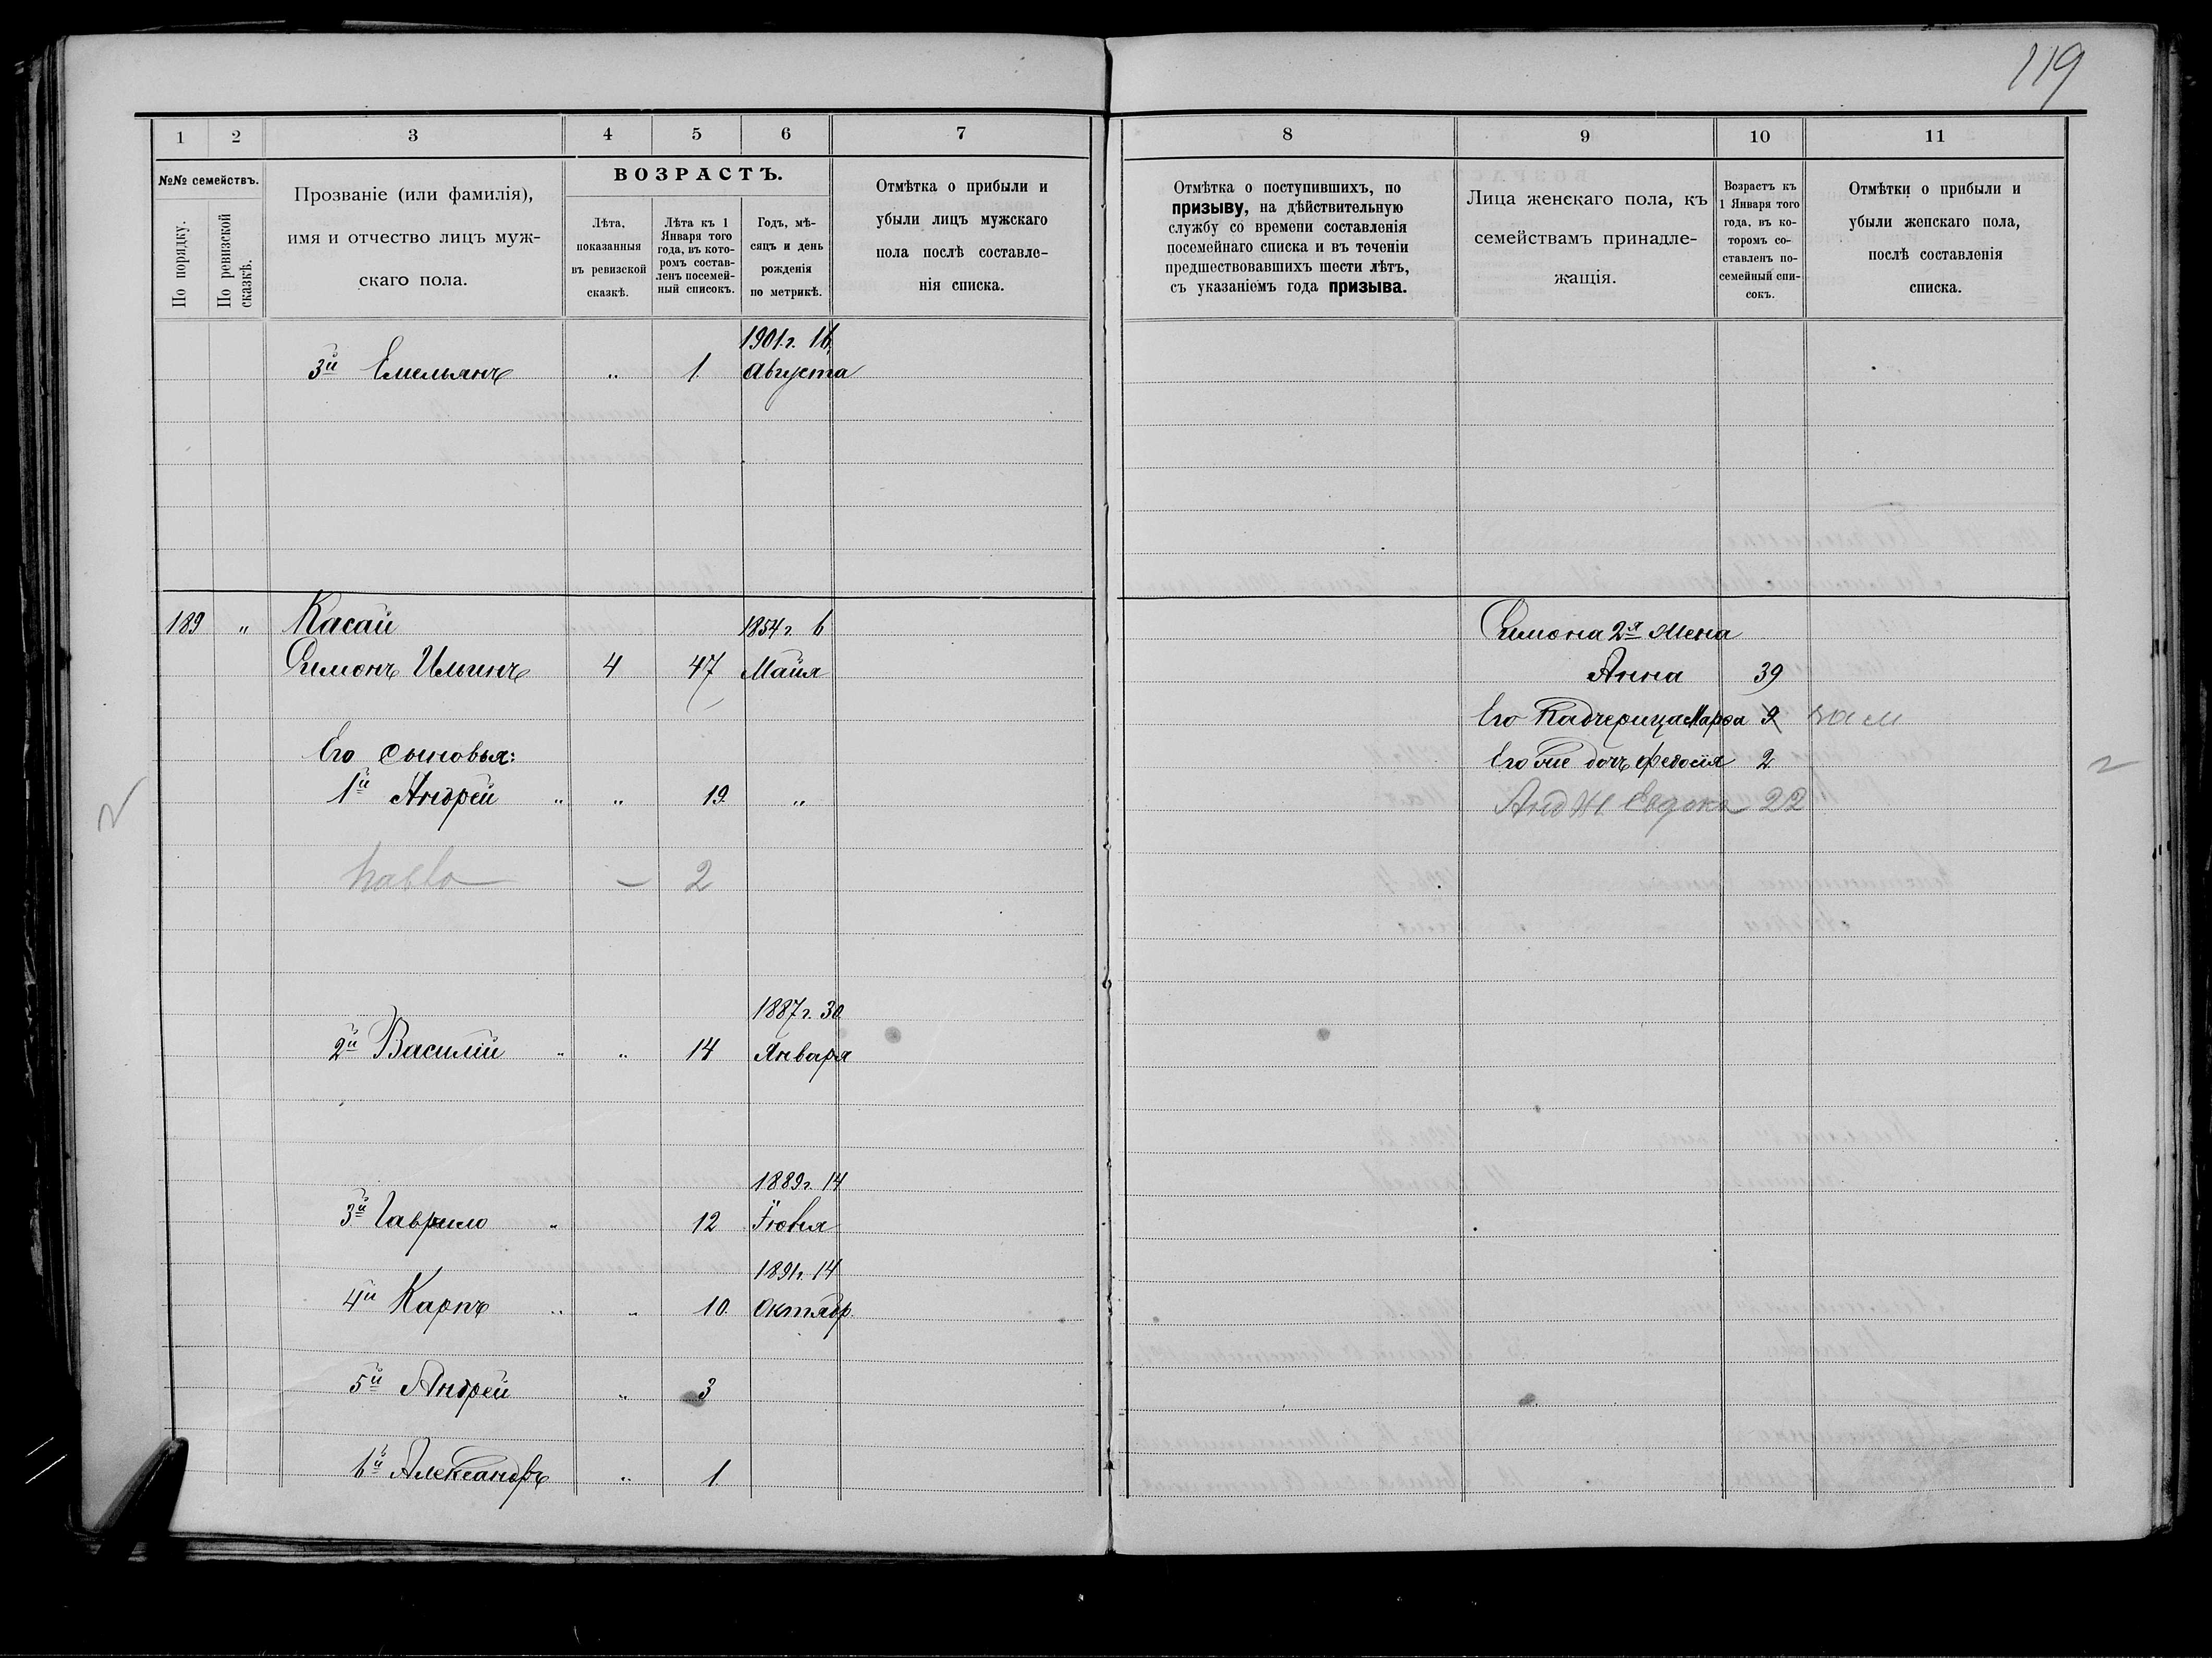 119
1 2 3 4 5 6 7 8 9 10 11
№№ семействъ.
По порядку.
По ревизской сказкѣ.
Прозваніе (или фамилія),
имя и отчество лицъ муж-
скаго пола.
ВОЗРАСТЪ.
Лѣта,
показанныя
въ ревизской
сказкѣ.
Лѣта къ 1
Января того
года, въ кото-
ромъ состав-
ленъ посемей-
ный списокъ.
Годъ, мѣ-
сяцъ и день
рожденія
по метрикѣ.
Отмѣтка о прибыли и
убыли лицъ мужскаго
пола послѣ составле-
нія списка.
Отмѣтка о поступившихъ, по
призыву, на дѣйствительную
службу со времени составленія
посемейнаго списка и въ теченіи
предшествовавшихъ шести лѣтъ,
съ указаніемъ года призыва.
Лица женскаго пола, къ
семействамъ принадле-
жащія.
Возрастъ къ
1 Января того
года, въ ко-
торомъ со-
ставленъ по-
семейный спи-
сокъ.
Отмѣтки о прибыли и
убыли женскаго пола,
послѣ составленія
списка.
1901 г. 16
3й Емельянъ " 1. Августа
189 " Касай 1854 г. 6
Симонъ Ильинъ 4 47 Майя
Его сыновья:
1й Андрей " " 19. "
Павло — 2
1887 г. 30
2й Василій " " 14 Января
1889 г. 14
3й Гаврило " 12 Іювня
1891 г. 14
4й Карпъ " " 10. Октябр.
5й Андрей " 3
6й Александръ " 1.
Симона 2я Жена
Анна 39
Его Падчерица Марфа 9 зам
Его же дочь Федосія 2
Анд Ж. Евдока 22